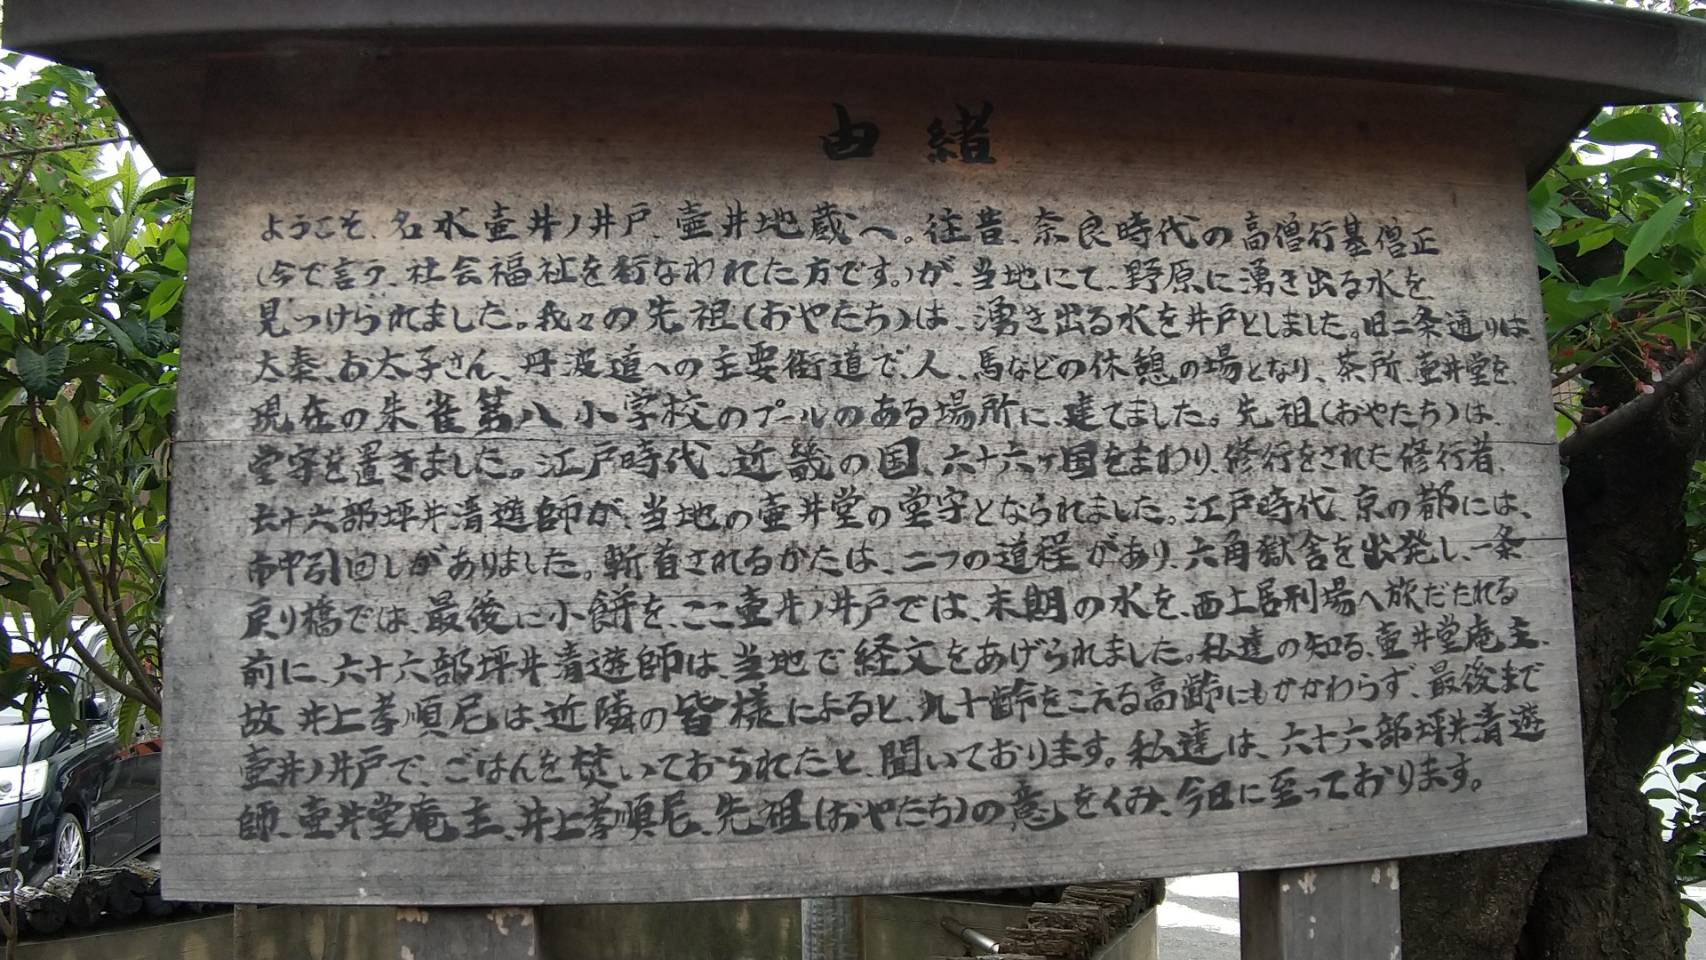 由緒
ようこそ、名水壺井ノ井戸、壺井地蔵へ。往昔、奈良時代の高僧行基僧正
(今で言う、社会福祉を行なわれた方です。)が、当地にて、野原に湧き出る水を
見つけられました。我々の先祖(おやたち)は、湧き出る水を井戸としました。旧二条通りは
太秦、お太子さん、丹波道への主要街道で、人、馬などの休憩の場となり、茶所、壺井堂を、
現在の朱雀第八小学校のプールのある場所に、建てました。先祖(おやたち)は、
堂守を置きました。江戸時代、近畿の国、六十六ヶ国をまわり、修行をされた修行者、
六十六部坪井清遊師が、当地の壺井堂の堂守となられました。江戸時代、京の都には、
市中引回しがありました。斬首されるかたは、二つの道程があり、六角獄舎を出発し、一条
戻り橋では、最後に小餅を、ここ壺井ノ井戸では、末期の水を、西土居刑場へ旅だたれる
前に、六十六部坪井清遊師は、当地で経文をあげられました。私達の知る、壺井堂庵主、
故井上孝順尼は、近隣の皆様によると、九十齢をこえる高齢にもかかわらず、最後まで
壺井ノ井戸で、ごはんを焚いておられたと、聞いております。私達は、六十六部坪井清遊
師、壺井堂庵主、井上孝順尼、先祖(おやたち)の意をくみ、今日に至っております。